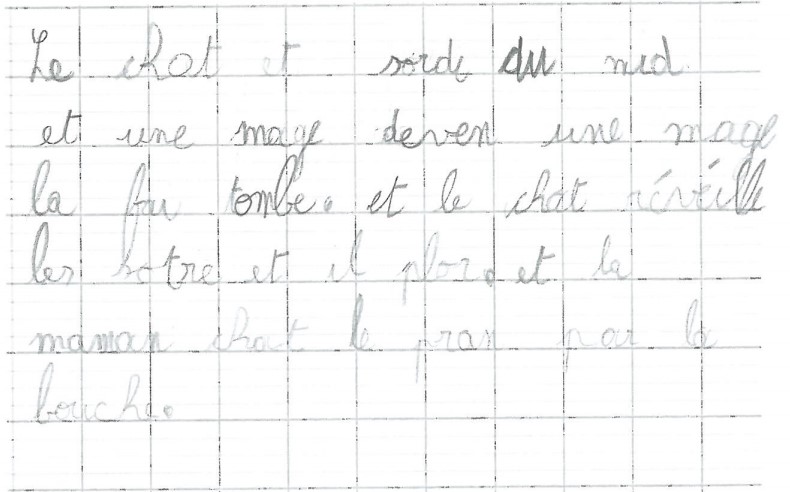 Le chat et sorde du nid
et une mage deven une mage
la fai tombe. et le chat réveille
les sotre et il plor. et la
maman chat le pran par la
bouche.